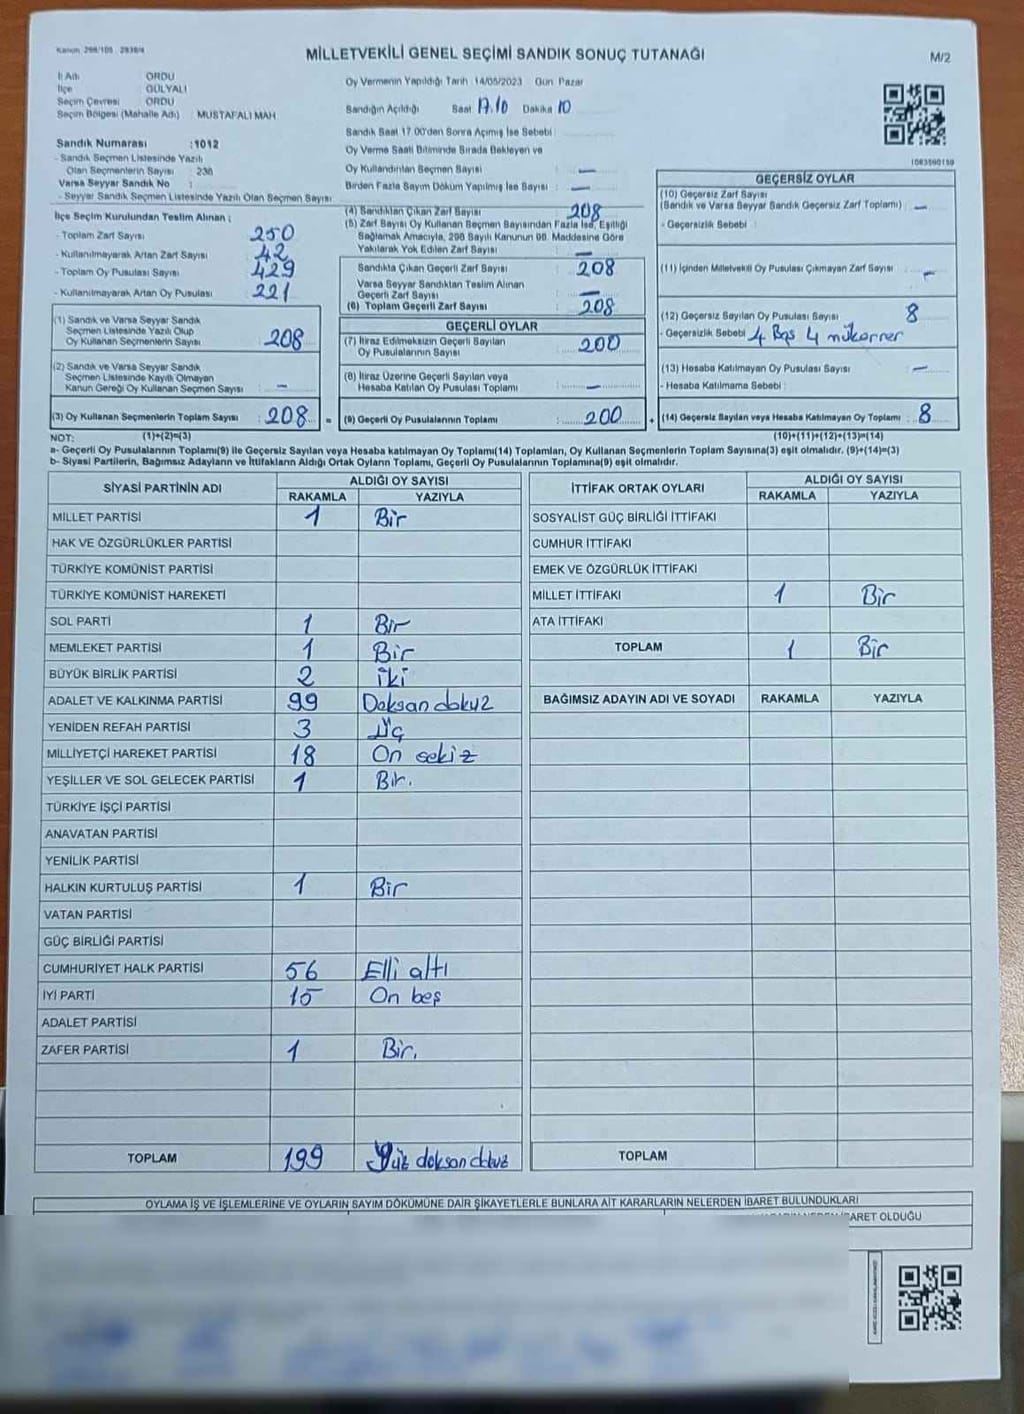 Kanun 298/105 . 2839/4
MİLLETVEKİLİ GENEL SEÇİMİ SANDIK SONUÇ TUTANAĞI
M/2
İl Adı ORDU
İlçe GÜLYALI
Seçim Çevresi ORDU
Seçim Bölgesi (Mahalle Adı) MUSTAFALI MAH
Sandık Numarası :1012
- Sandık Seçmen Listesinde Yazılı
Olan Seçmenlerin Sayısı : 236
Varsa Seyyar Sandık No :
- Seyyar Sandık Seçmen Listesinde Yazılı Olan Seçmen Sayısı
Oy Vermenin Yapıldığı Tarih 14/05/2023 Gün Pazar
Sandığın Açıldığı Saat 17.10 Dakika 10
Sandık Saat 17.00'den Sonra Açımış İse Sebebi
Oy Verme Saati Bitiminde Sırada Bekleyen ve
Oy Kullandırılan Seçmen Sayısı : —
Birden Fazla Sayım Döküm Yapılmış İse Sayısı : —
1083590159
İlçe Seçim Kurulundan Teslim Alınan ;
- Toplam Zarf Sayısı 250
- Kullanılmayarak Artan Zarf Sayısı 42
- Toplam Oy Pusulası Sayısı 429
- Kullanılmayarak Artan Oy Pusulası 221
(1) Sandık ve Varsa Seyyar Sandık
Seçmen Listesinde Yazılı Olup
Oy Kullanan Seçmenlerin Sayısı : 208
(2) Sandık ve Varsa Seyyar Sandık
Seçmen Listesinde Kayıtlı Olmayan
Kanun Gereği Oy Kullanan Seçmen Sayısı : —
(3) Oy Kullanan Seçmenlerin Toplam Sayısı : 208 =
(4) Sandıktan Çıkan Zarf Sayısı 208
(5) Zarf Sayısı Oy Kullanan Seçmen Sayısından Fazla İse, Eşitliği
Sağlamak Amacıyla, 298 Sayılı Kanunun 98. Maddesine Göre
Yakılarak Yok Edilen Zarf Sayısı : —
Sandıkta Çıkan Geçerli Zarf Sayısı : 208
Varsa Seyyar Sandıktan Teslim Alınan
Geçerli Zarf Sayısı : —
(6) Toplam Geçerli Zarf Sayısı : 208
GEÇERLİ OYLAR
(7) İtiraz Edilmeksizin Geçerli Sayılan
Oy Pusulalarının Sayısı : 200
(8) İtiraz Üzerine Geçerli Sayılan veya
Hesaba Katılan Oy Pusulası Toplamı : —
(9) Geçerli Oy Pusulalarının Toplamı : 200 +
GEÇERSİZ OYLAR
(10) Geçersiz Zarf Sayısı
(Sandık ve Varsa Seyyar Sandık Geçersiz Zarf Toplamı) : —
- Geçersizlik Sebebi
(11) İçinden Milletvekili Oy Pusulası Çıkmayan Zarf Sayısı : —
(12) Geçersiz Sayılan Oy Pusulası Sayısı : 8
- Geçersizlik Sebebi 4 Boş 4 mükerrer
(13) Hesaba Katılmayan Oy Pusulası Sayısı : —
- Hesaba Katılmama Sebebi :
(14) Geçersiz Sayılan veya Hesaba Katılmayan Oy Toplamı : 8
NOT: (1)+(2)=(3) (10)+(11)+(12)+(13)=(14)
a- Geçerli Oy Pusulalarının Toplamı(9) ile Geçersiz Sayılan veya Hesaba katılmayan Oy Toplamı(14) Toplamları, Oy Kullanan Seçmenlerin Toplam Sayısına(3) eşit olmalıdır. (9)+(14)=(3)
b- Siyasi Partilerin, Bağımsız Adayların ve İttifakların Aldığı Ortak Oyların Toplamı, Geçerli Oy Pusulalarının Toplamına(9) eşit olmalıdır.
SİYASİ PARTİNİN ADI ALDIĞI OY SAYISI
RAKAMLA YAZIYLA
MİLLET PARTİSİ 1 Bir
HAK VE ÖZGÜRLÜKLER PARTİSİ
TÜRKİYE KOMÜNİST PARTİSİ
TÜRKİYE KOMÜNİST HAREKETİ
SOL PARTİ 1 Bir
MEMLEKET PARTİSİ 1 Bir
BÜYÜK BİRLİK PARTİSİ 2 iki
ADALET VE KALKINMA PARTİSİ 99 Doksan dokuz
YENİDEN REFAH PARTİSİ 3 Üç
MİLLİYETÇİ HAREKET PARTİSİ 18 On sekiz
YEŞİLLER VE SOL GELECEK PARTİSİ 1 Bir.
TÜRKİYE İŞÇİ PARTİSİ
ANAVATAN PARTİSİ
YENİLİK PARTİSİ
HALKIN KURTULUŞ PARTİSİ 1 Bir
VATAN PARTİSİ
GÜÇ BİRLİĞİ PARTİSİ
CUMHURİYET HALK PARTİSİ 56 Elli altı
İYİ PARTİ 15 On beş
ADALET PARTİSİ
ZAFER PARTİSİ 1 Bir.
TOPLAM 199 Yüz doksan dokuz
İTTİFAK ORTAK OYLARI ALDIĞI OY SAYISI
RAKAMLA YAZIYLA
SOSYALİST GÜÇ BİRLİĞİ İTTİFAKI
CUMHUR İTTİFAKI
EMEK VE ÖZGÜRLÜK İTTİFAKI
MİLLET İTTİFAKI 1 Bir
ATA İTTİFAKI
TOPLAM 1 Bir
BAĞIMSIZ ADAYIN ADI VE SOYADI RAKAMLA YAZIYLA
TOPLAM
OYLAMA İŞ VE İŞLEMLERİNE VE OYLARIN SAYIM DÖKÜMÜNE DAİR ŞİKAYETLERLE BUNLARA AİT KARARLARIN NELERDEN İBARET BULUNDUKLARI
İBARET OLDUĞU